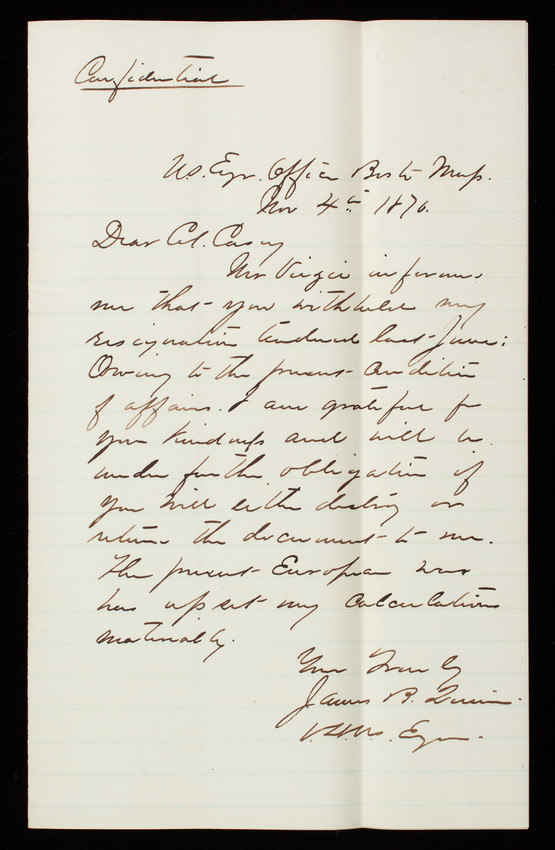 Confidential
U.S. Engr. Office Bost. Mass.
Nov 4th 1870.
Dear Col. Casey
Mr Virgie informs
me that you withheld my
resignation tendered last June:
Owing to the present condition
of affairs. I am grateful for
your kindness and will be
under further obligation if
you will either destroy or
return the document to me.
The present European war
has upset my calculations
materially.
Your Truly
James B. Quinn
Engr.